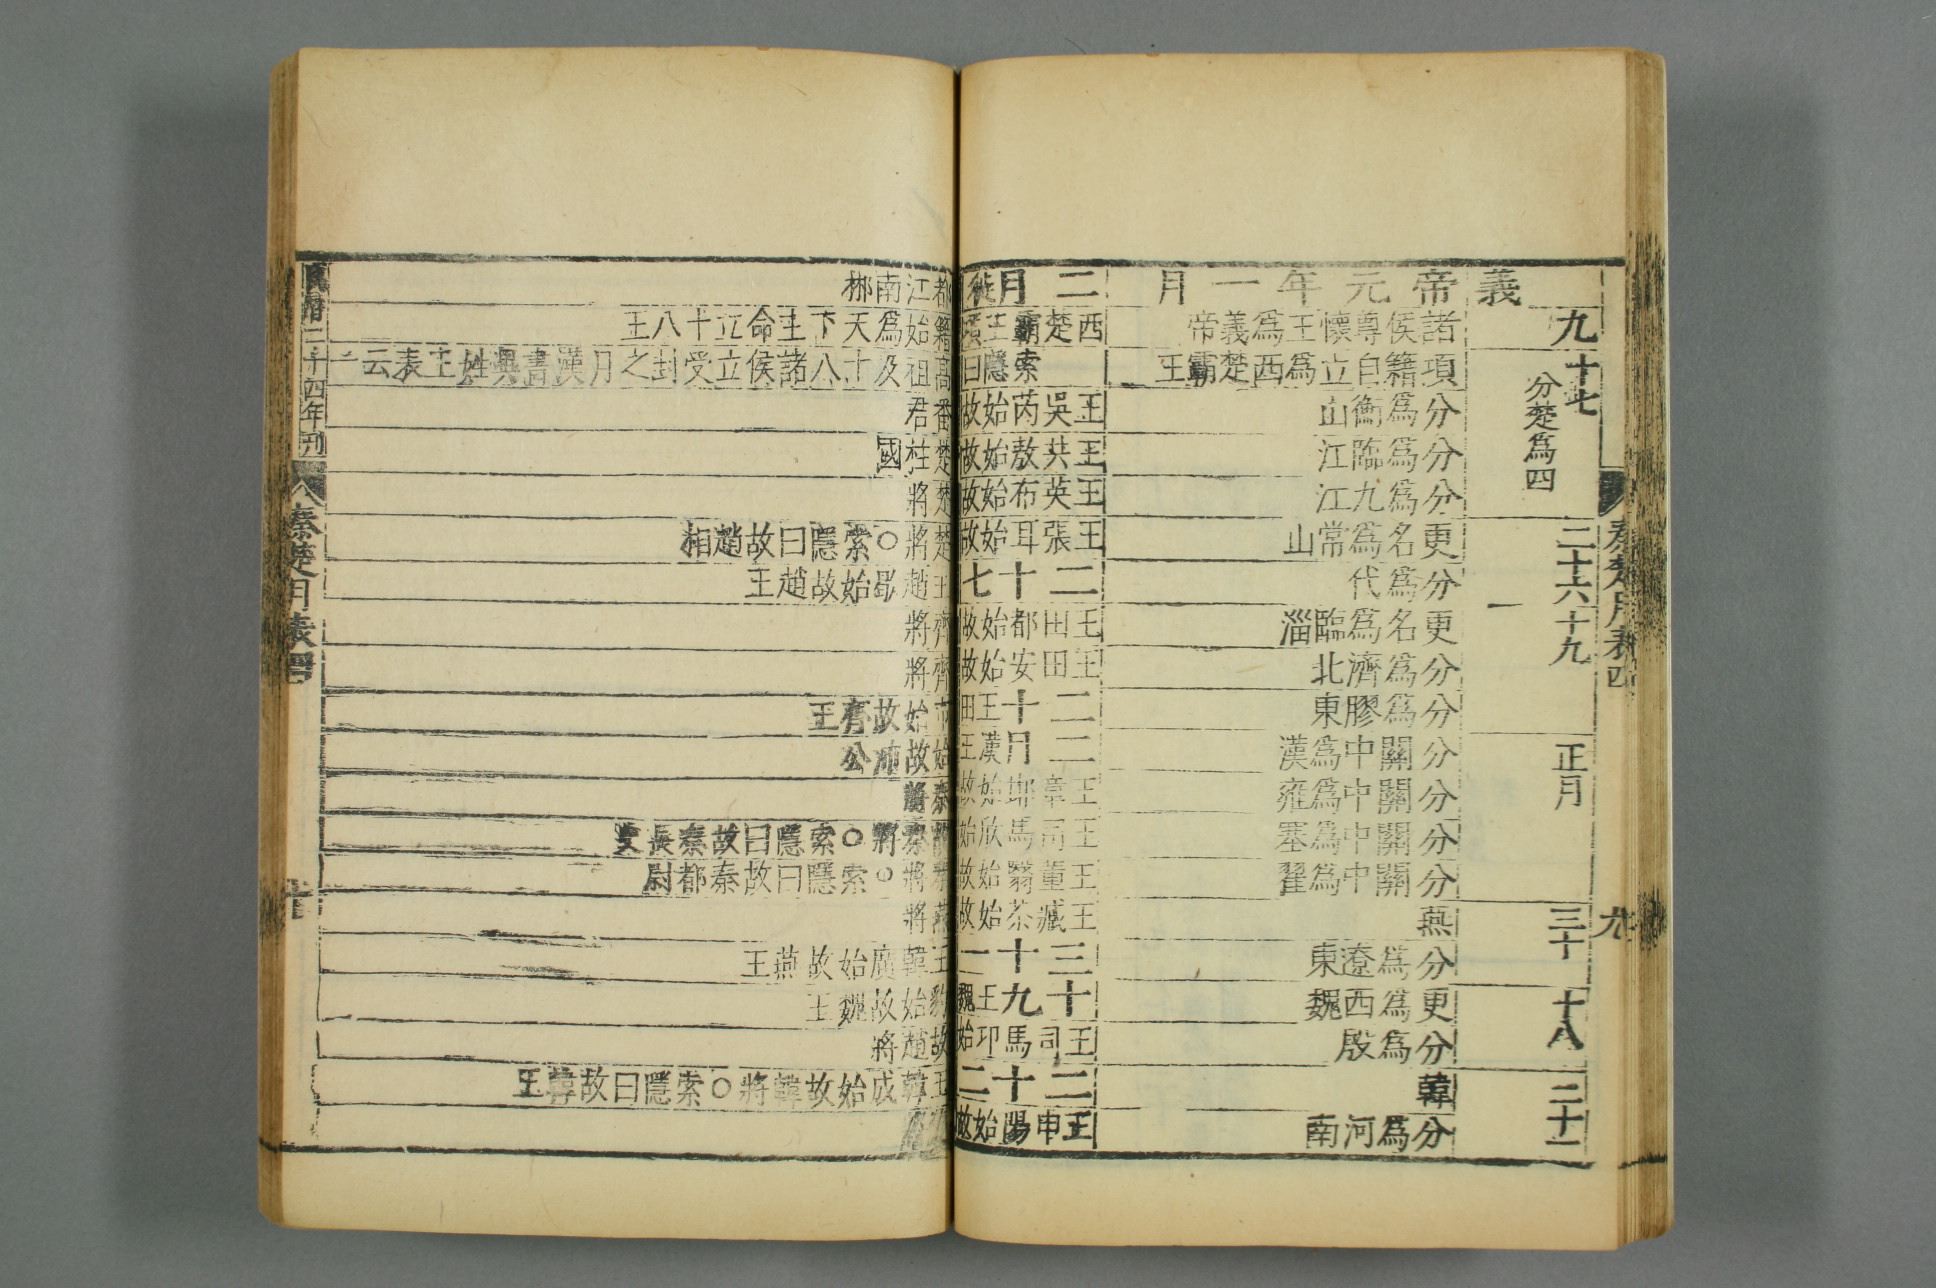 秦楚月表四
九
九
十七
分楚爲四
二十六
十九
一
正月
三十
十八
二十一
義帝元年一月
諸侯尊懷王爲義帝
項籍自立爲西楚霸王
分爲衡山
分爲臨江
分爲九江
更名爲常山
分爲代
更名爲臨淄
分爲濟北
分爲膠東
分關中爲漢
分關中爲雍
分關中爲塞
分關中爲翟
燕
分爲遼東
更爲西魏
分爲殷
韓
分爲河南
二月徙都江南郴
西楚霸王項籍始爲天下主命立十八王
索隱曰高祖及十八諸侯立受封之月漢書異姓王表云一
王吳芮始故番君
王共敖始故楚柱國
王英布始故楚將
王張耳始故楚將○索隱曰故趙相
二十七王趙歇始故趙王
王田都始故齊將
王田安始故齊將
二十王田市始故齊王
二月漢王始故沛公
王章邯始故秦將
王司馬欣始故秦將○索隱曰故秦長史
王董翳始故秦將○索隱曰故秦都尉
王臧荼始故燕將
三十一王韓廣始故燕王
十九王魏豹始故魏王
王司馬卬始故趙將
二十二王韓成始故韓將○索隱曰故韓王
王申陽始故
二十四年刊
秦楚月表四